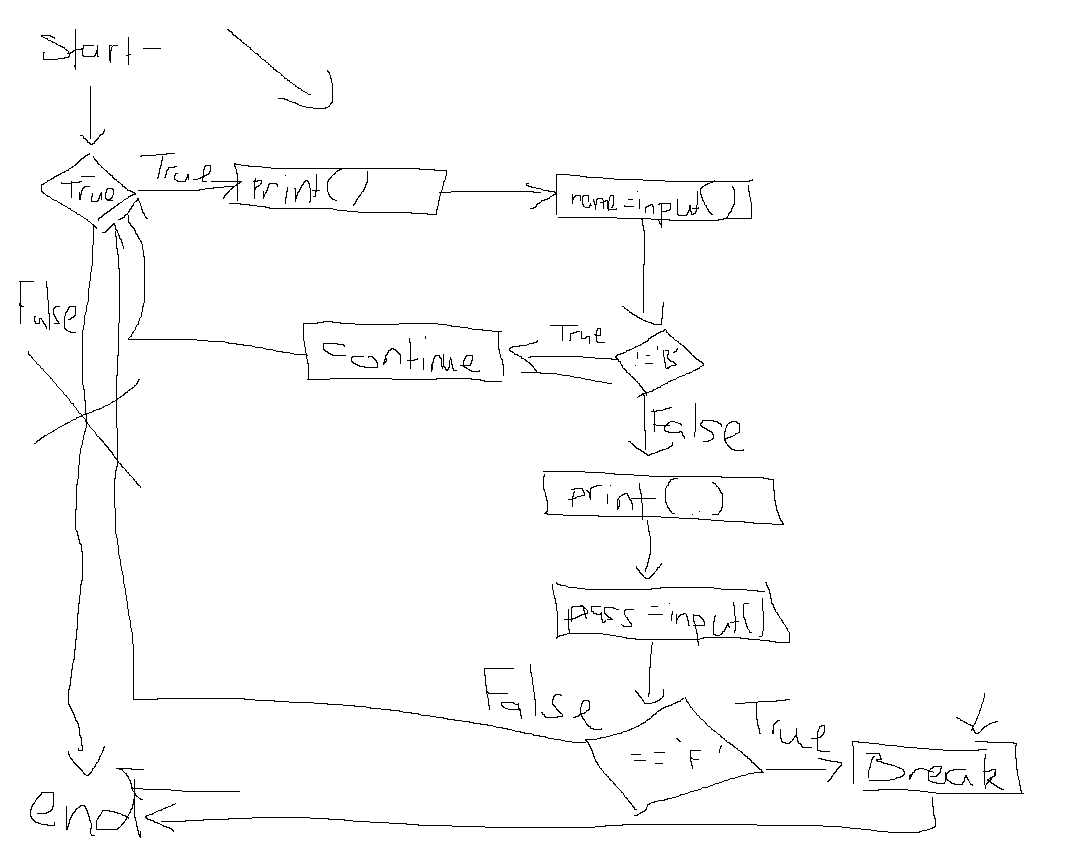 Start
True
True
print()
name=input()
False
continue
True
!='B'
False
print()
pass=input()
False
=='F'
True
Break
end